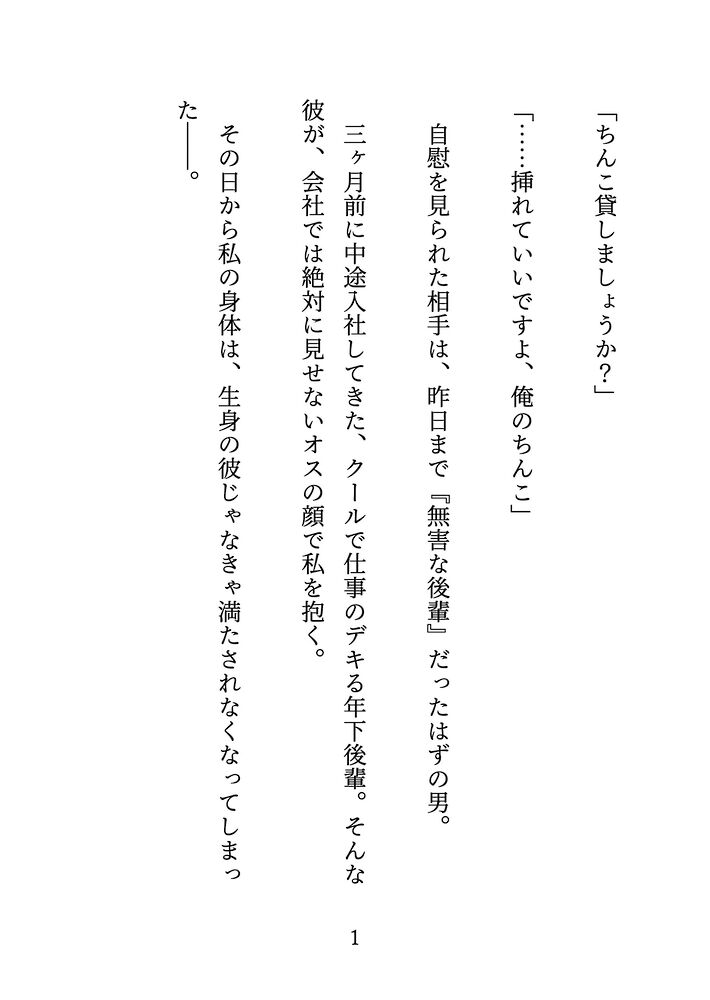 「ちんこ貸しましょうか？」
「……挿れていいですよ、俺のちんこ」
自慰を見られた相手は、昨日まで『無害な後輩』だったはずの男。
三ヶ月前に中途入社してきた、クールで仕事のデキる年下後輩。そんな
彼が、会社では絶対に見せないオスの顔で私を抱く。
その日から私の身体は、生身の彼じゃなきゃ満たされなくなってしまっ
た――。
1